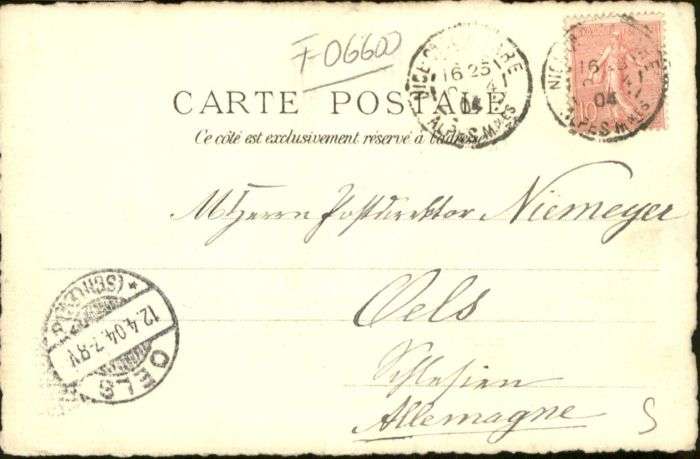 F-06600
CARTE POSTALE
Ce côté est exclusivement réservé à l'adresse
16 25
04
ALPES-MMES
16
04
ALPES-MMES
Herrn Postdirektor Niemeyer
Oels
Schlesien
Allemagne
S
OELS
12.4.04.7-8V